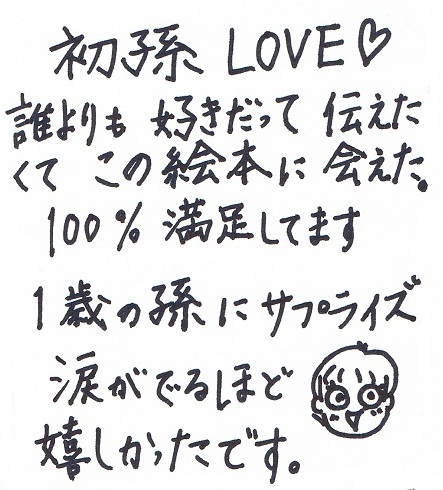 初孫 LOVE♡
誰よりも 好きだって 伝えた
くて この絵本に 会えた。
100% 満足してます
1歳の孫にサプライズ
涙がでるほど
嬉しかったです。